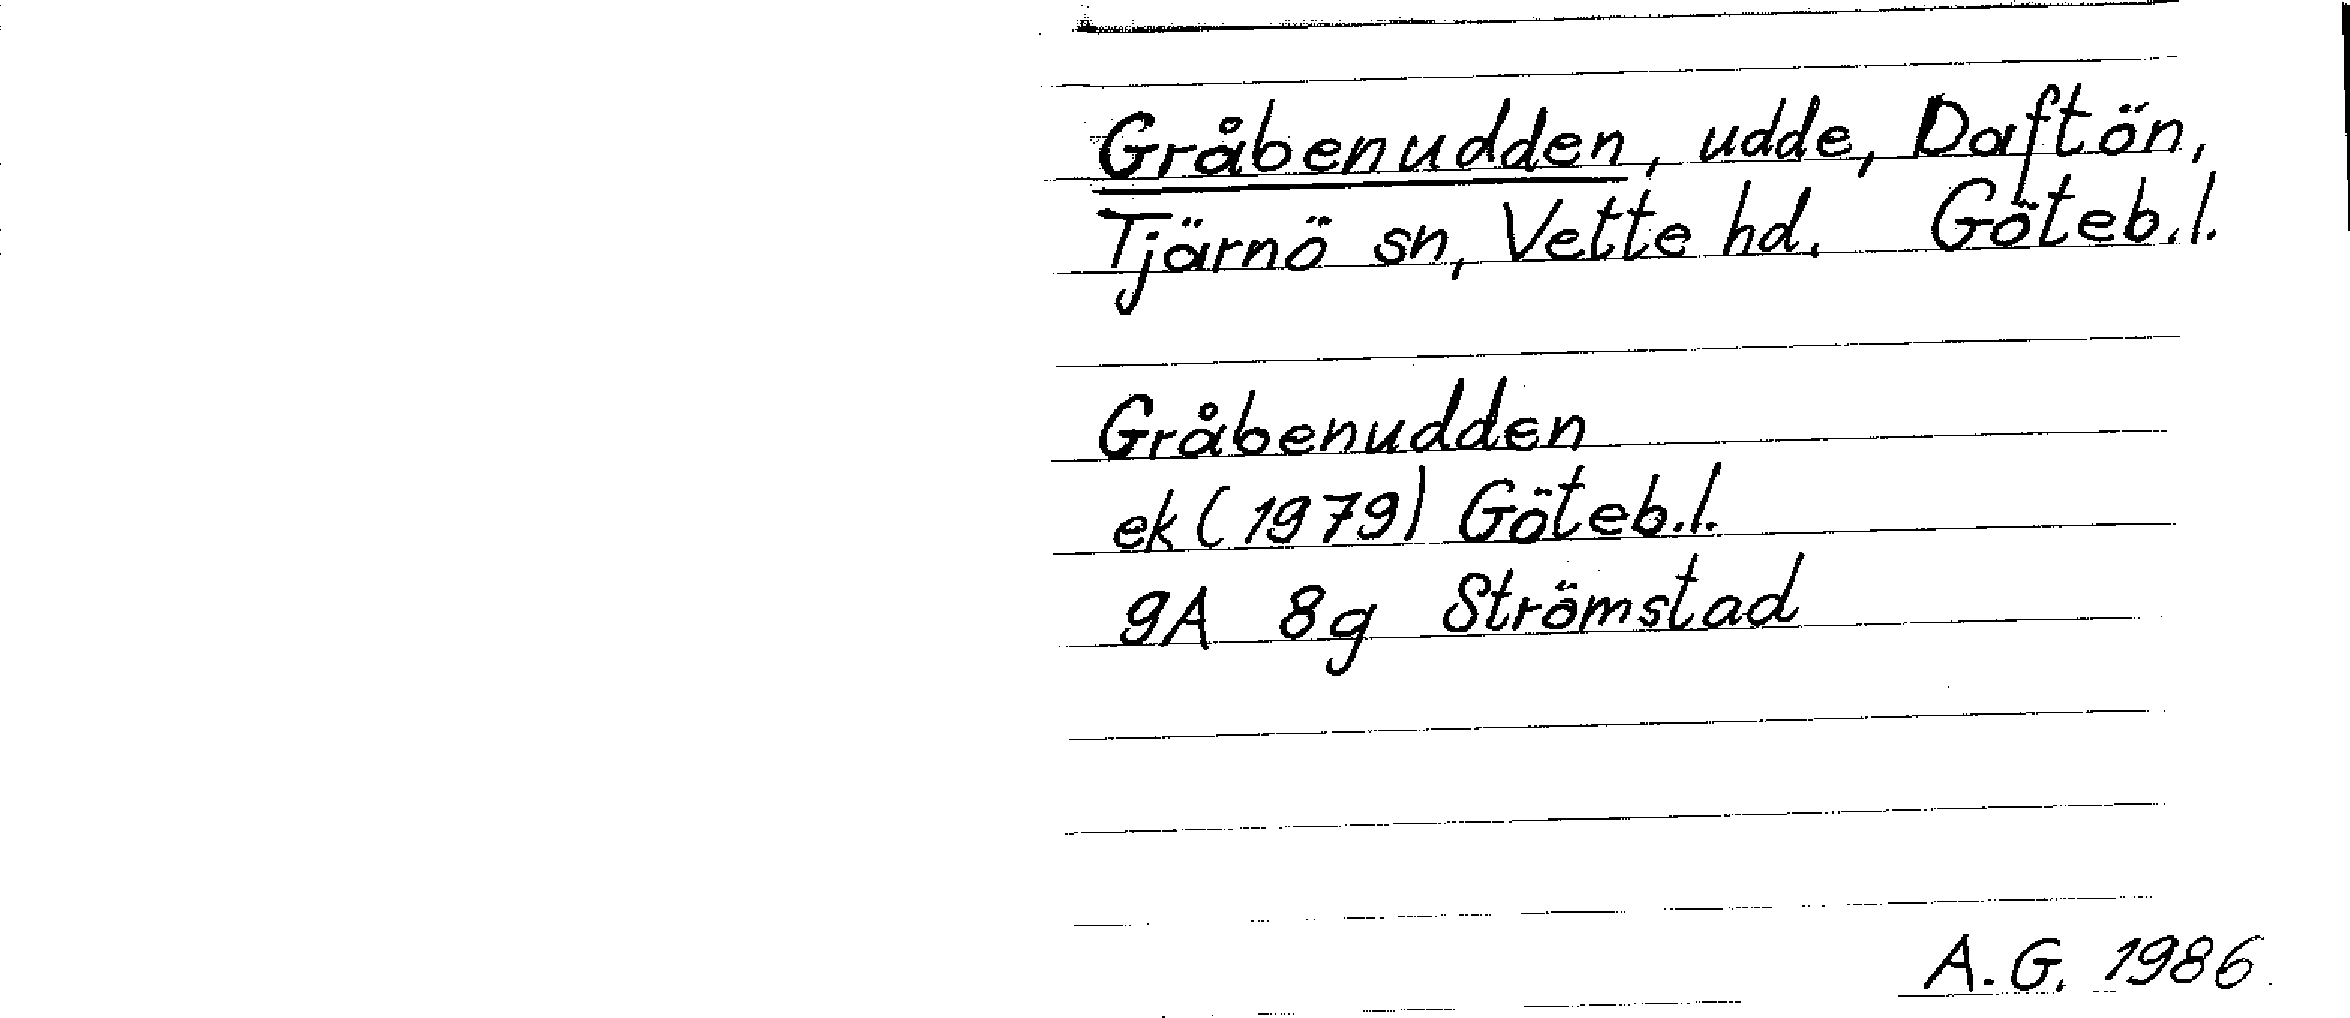 Gråbenudden, udde, Daftön,
Tjärnö sn, Vette hd. Göteb.l.
Gråbenudden
ek (1979) Göteb.l.
9A 8g Strömstad
A.G. 1986